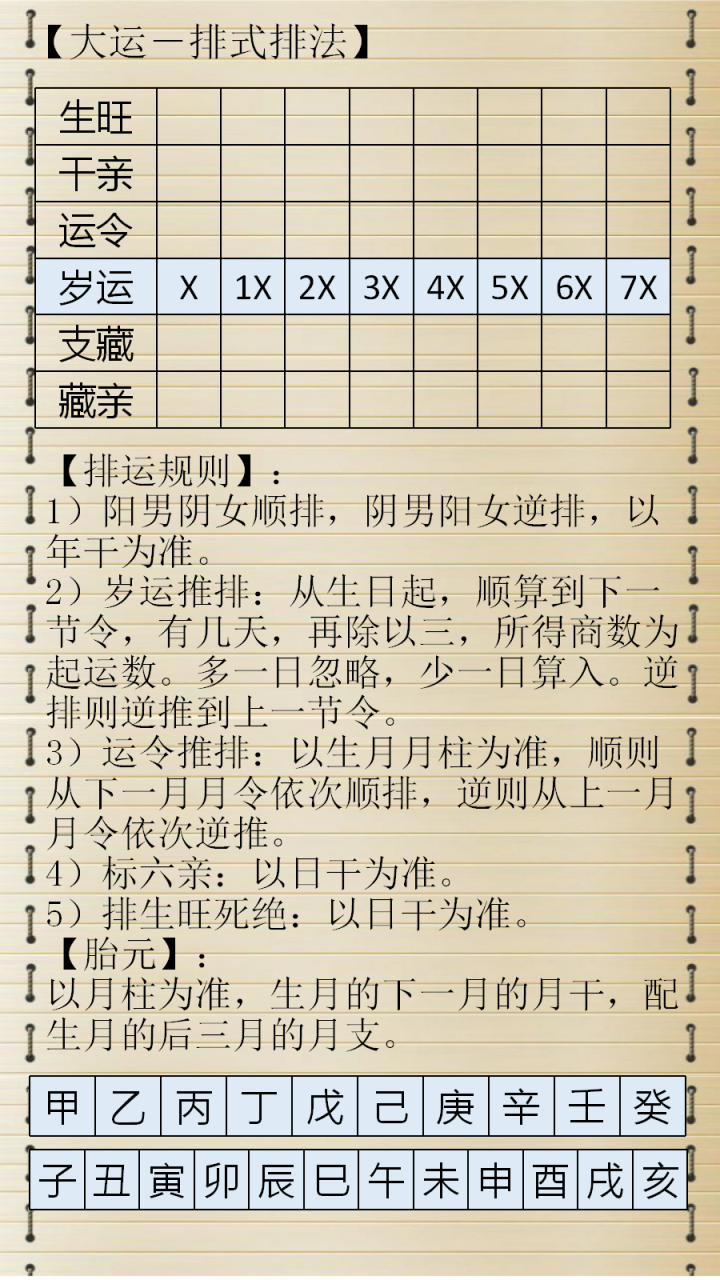 【大运－排式排法】
生旺
干亲
运令
岁运 X 1X 2X 3X 4X 5X 6X 7X
支藏
藏亲
【排运规则】：
1）阳男阴女顺排，阴男阳女逆排，以
年干为准。
2）岁运推排：从生日起，顺算到下一
节令，有几天，再除以三，所得商数为
起运数。多一日忽略，少一日算入。逆
排则逆推到上一节令。
3）运令推排：以生月月柱为准，顺则
从下一月月令依次顺排，逆则从上一月
月令依次逆推。
4）标六亲：以日干为准。
5）排生旺死绝：以日干为准。
【胎元】：
以月柱为准，生月的下一月的月干，配
生月的后三月的月支。
甲 乙 丙 丁 戊 己 庚 辛 壬 癸
子 丑 寅 卯 辰 巳 午 未 申 酉 戌 亥